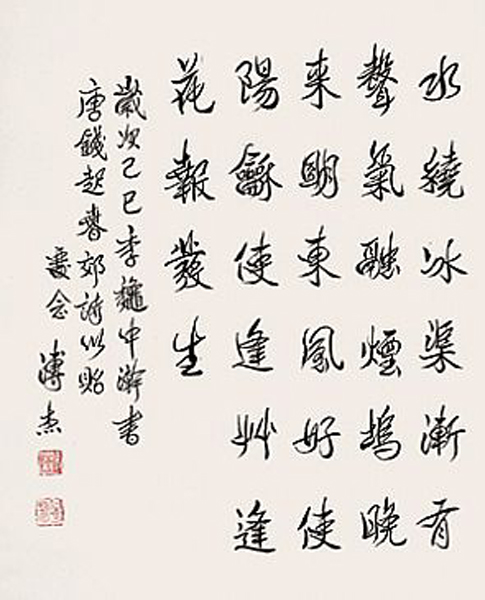 水繞冰渠漸有
聲氣融煙塢晚
来明東風好使
陽龢使逢艸逢
花報發生
歲次己巳季龝中澣書
唐錢起春郊詩以貽
念 溥杰